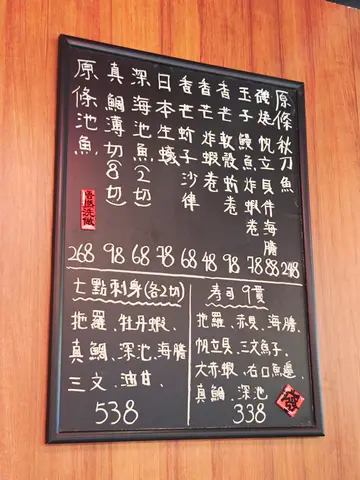 原條秋刀魚 248
磯燒帆立貝伴海膽 88
玉子鰻魚炸蝦卷 78
香芒軟殼蚧卷 98
香芒炸蝦卷 48
香芒蚧子沙律 68
日本生蠔 78
深海池魚(2切) 68
真鯛薄切(8切) 98
原條池魚 268
七點刺身(各2切)
拖羅、牡丹蝦、
真鯛、深池、海膽
三文、油甘、
538
寿司 9貫
拖羅、赤貝、海膽、
帆立貝、三文魚子、
大赤蝦、左口魚邊、
真鯛、深池
338